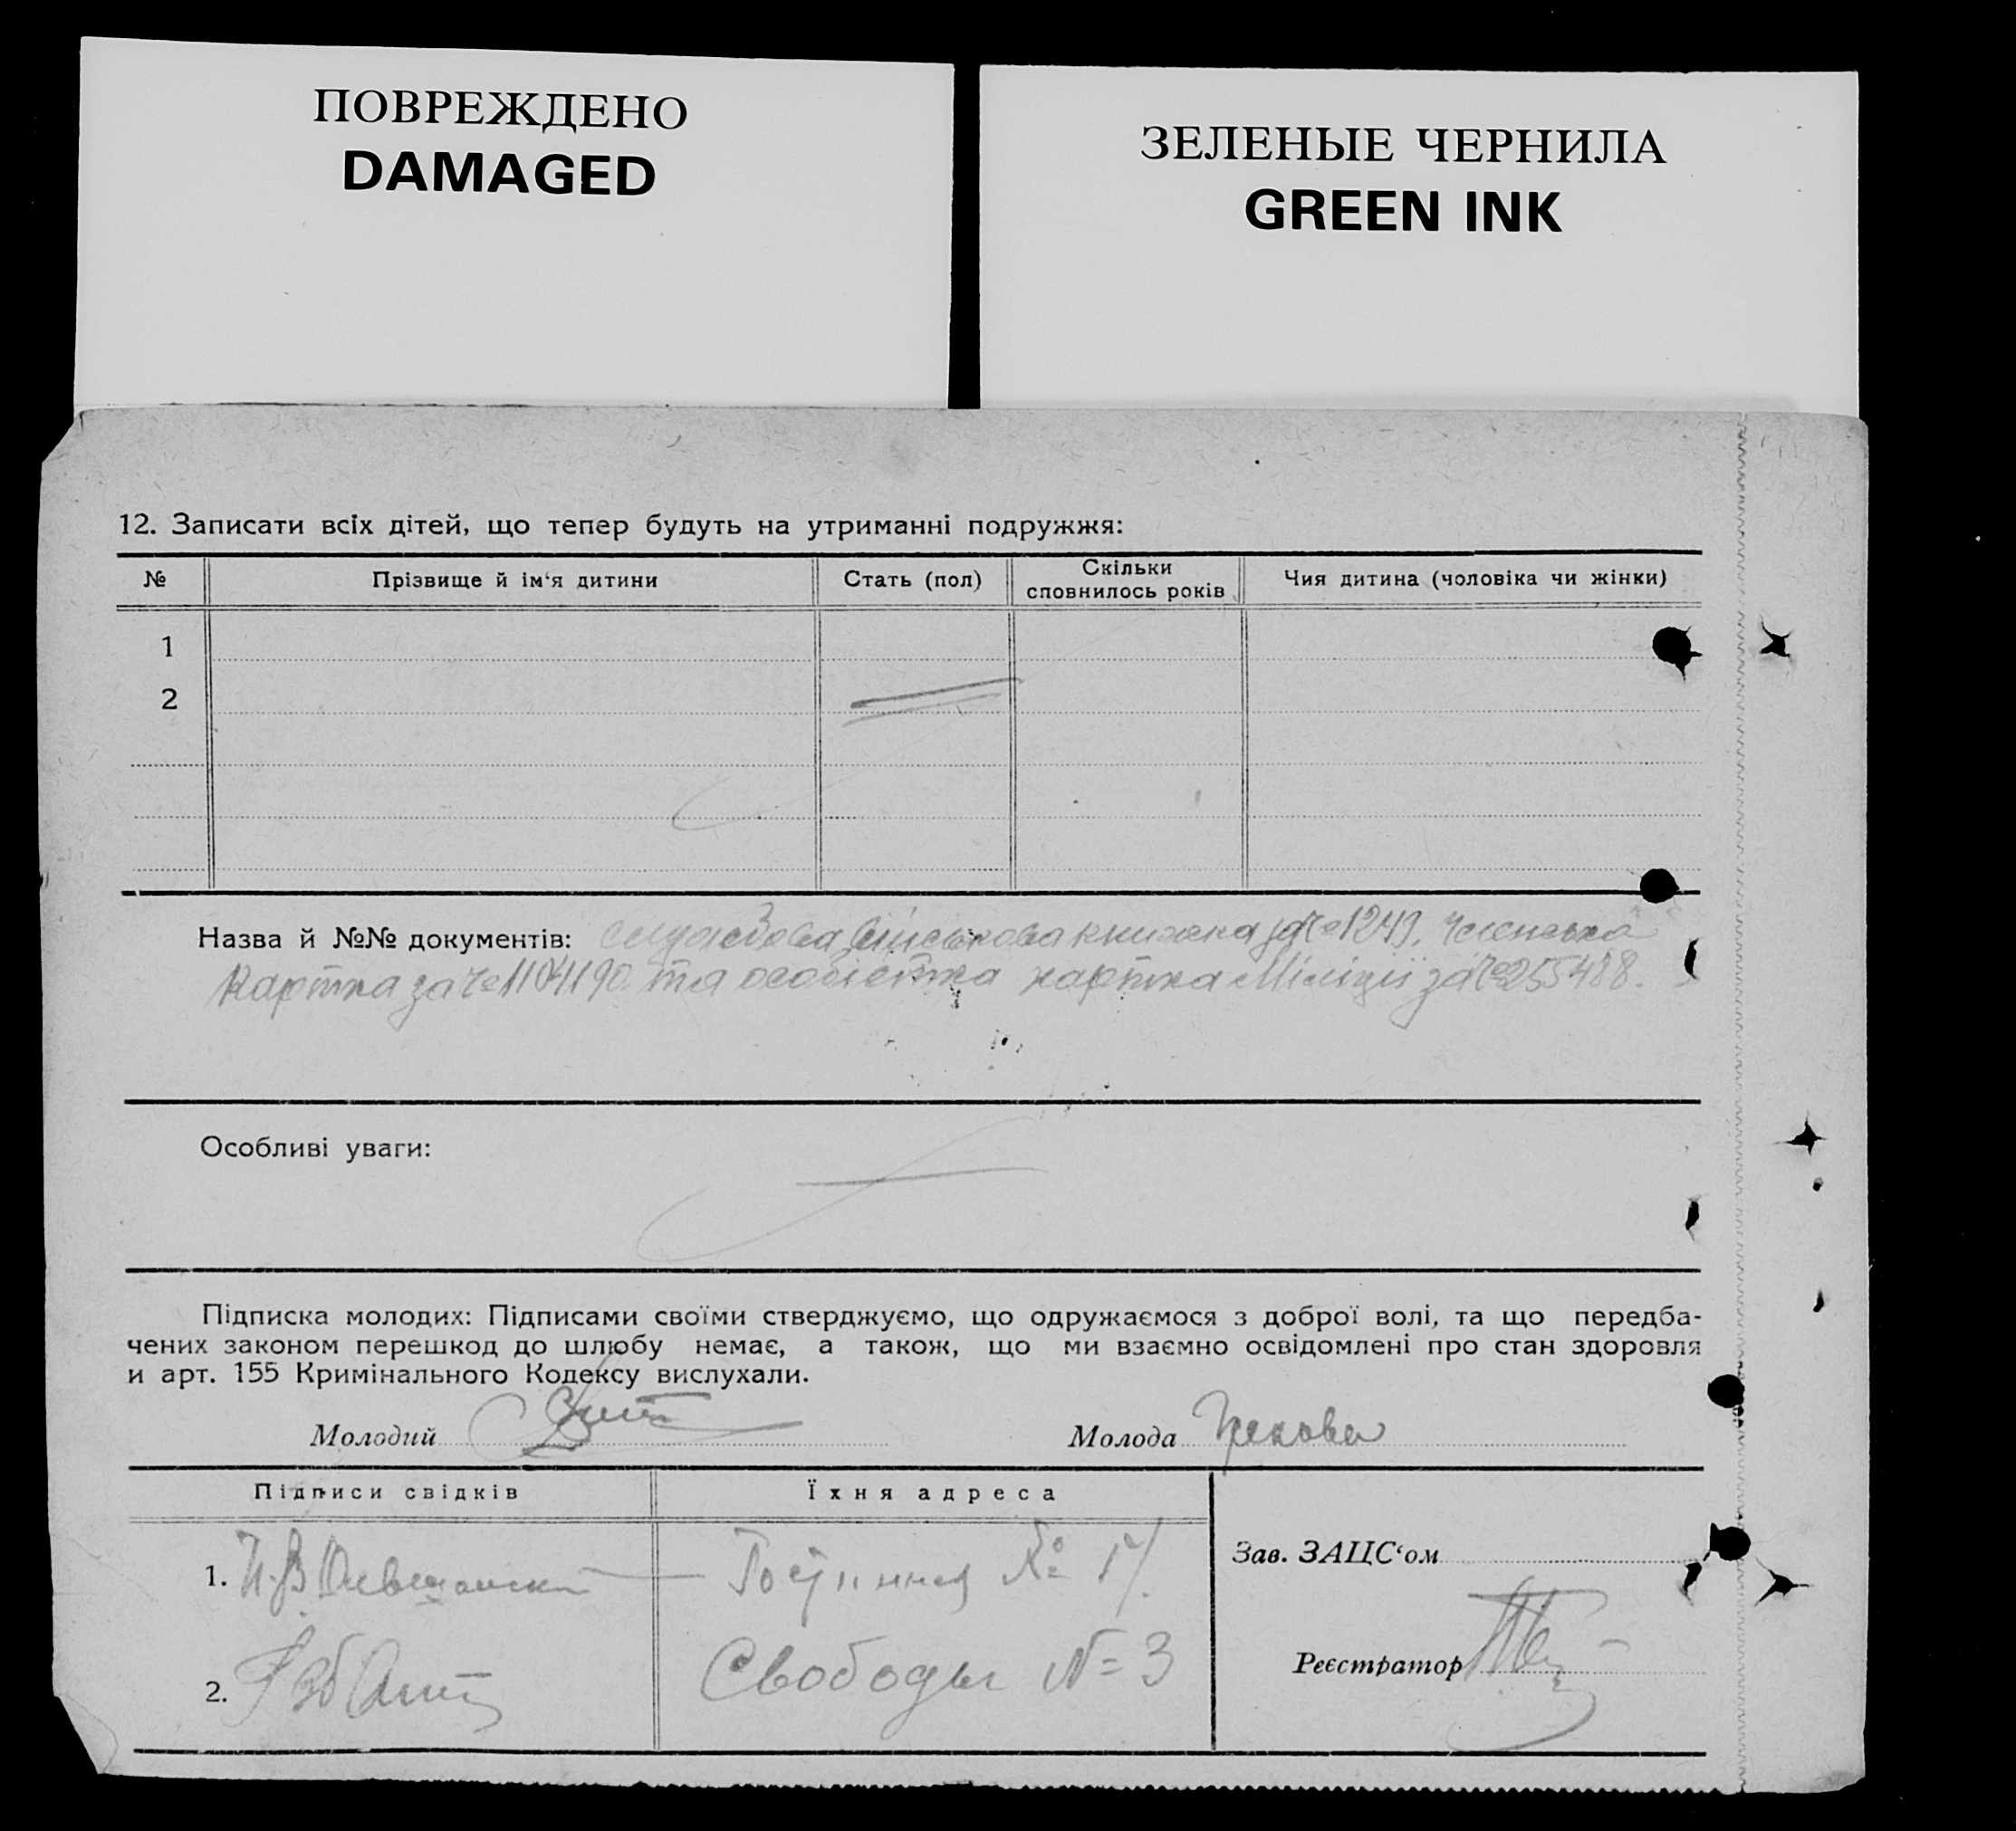 ПОВРЕЖДЕНО
DAMAGED
ЗЕЛЕНЫЕ ЧЕРНИЛА
GREEN INK
12. Записати всіх дітей, що тепер будуть на утриманні подружжя:
№ Прізвище й ім‘я дитини Стать (пол) Скільки сповнилось років Чия дитина (чоловіка чи жінки)
1
2
Назва й №№ документів: військова книжка за № 1249. Членська
картка за № та особіста картка Міліції за №
Особливі уваги:
Підписка молодих: Підписами своїми стверджуємо, що одружаємося з доброї волі, та що передба-
чених законом перешкод до шлюбу немає, а також, що ми взаємно освідомлені про стан здоровля
и арт. 155 Кримінального Кодексу вислухали.
Молодий Молода
Підписи свідків Їхня адреса
Зав. ЗАЦС‘ом
1.
Реєстратор
2. Свободы № 3